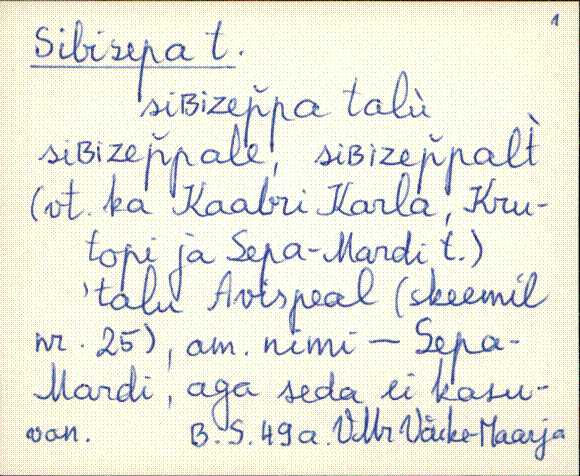 1
Sibisepa t.
siBizep̆pa talù
siBizep̆pale, siBizep̆palt̀
(vt. ka Kaabri Karla, Kru-
topi ja Sepa-Mardi t.)
'talu Avispeal (skeemil
nr. 25), am. nimi — Sepa-
Mardi, aga seda ei kasu-
van. B.S. 49a. VMr Väike-Maarja